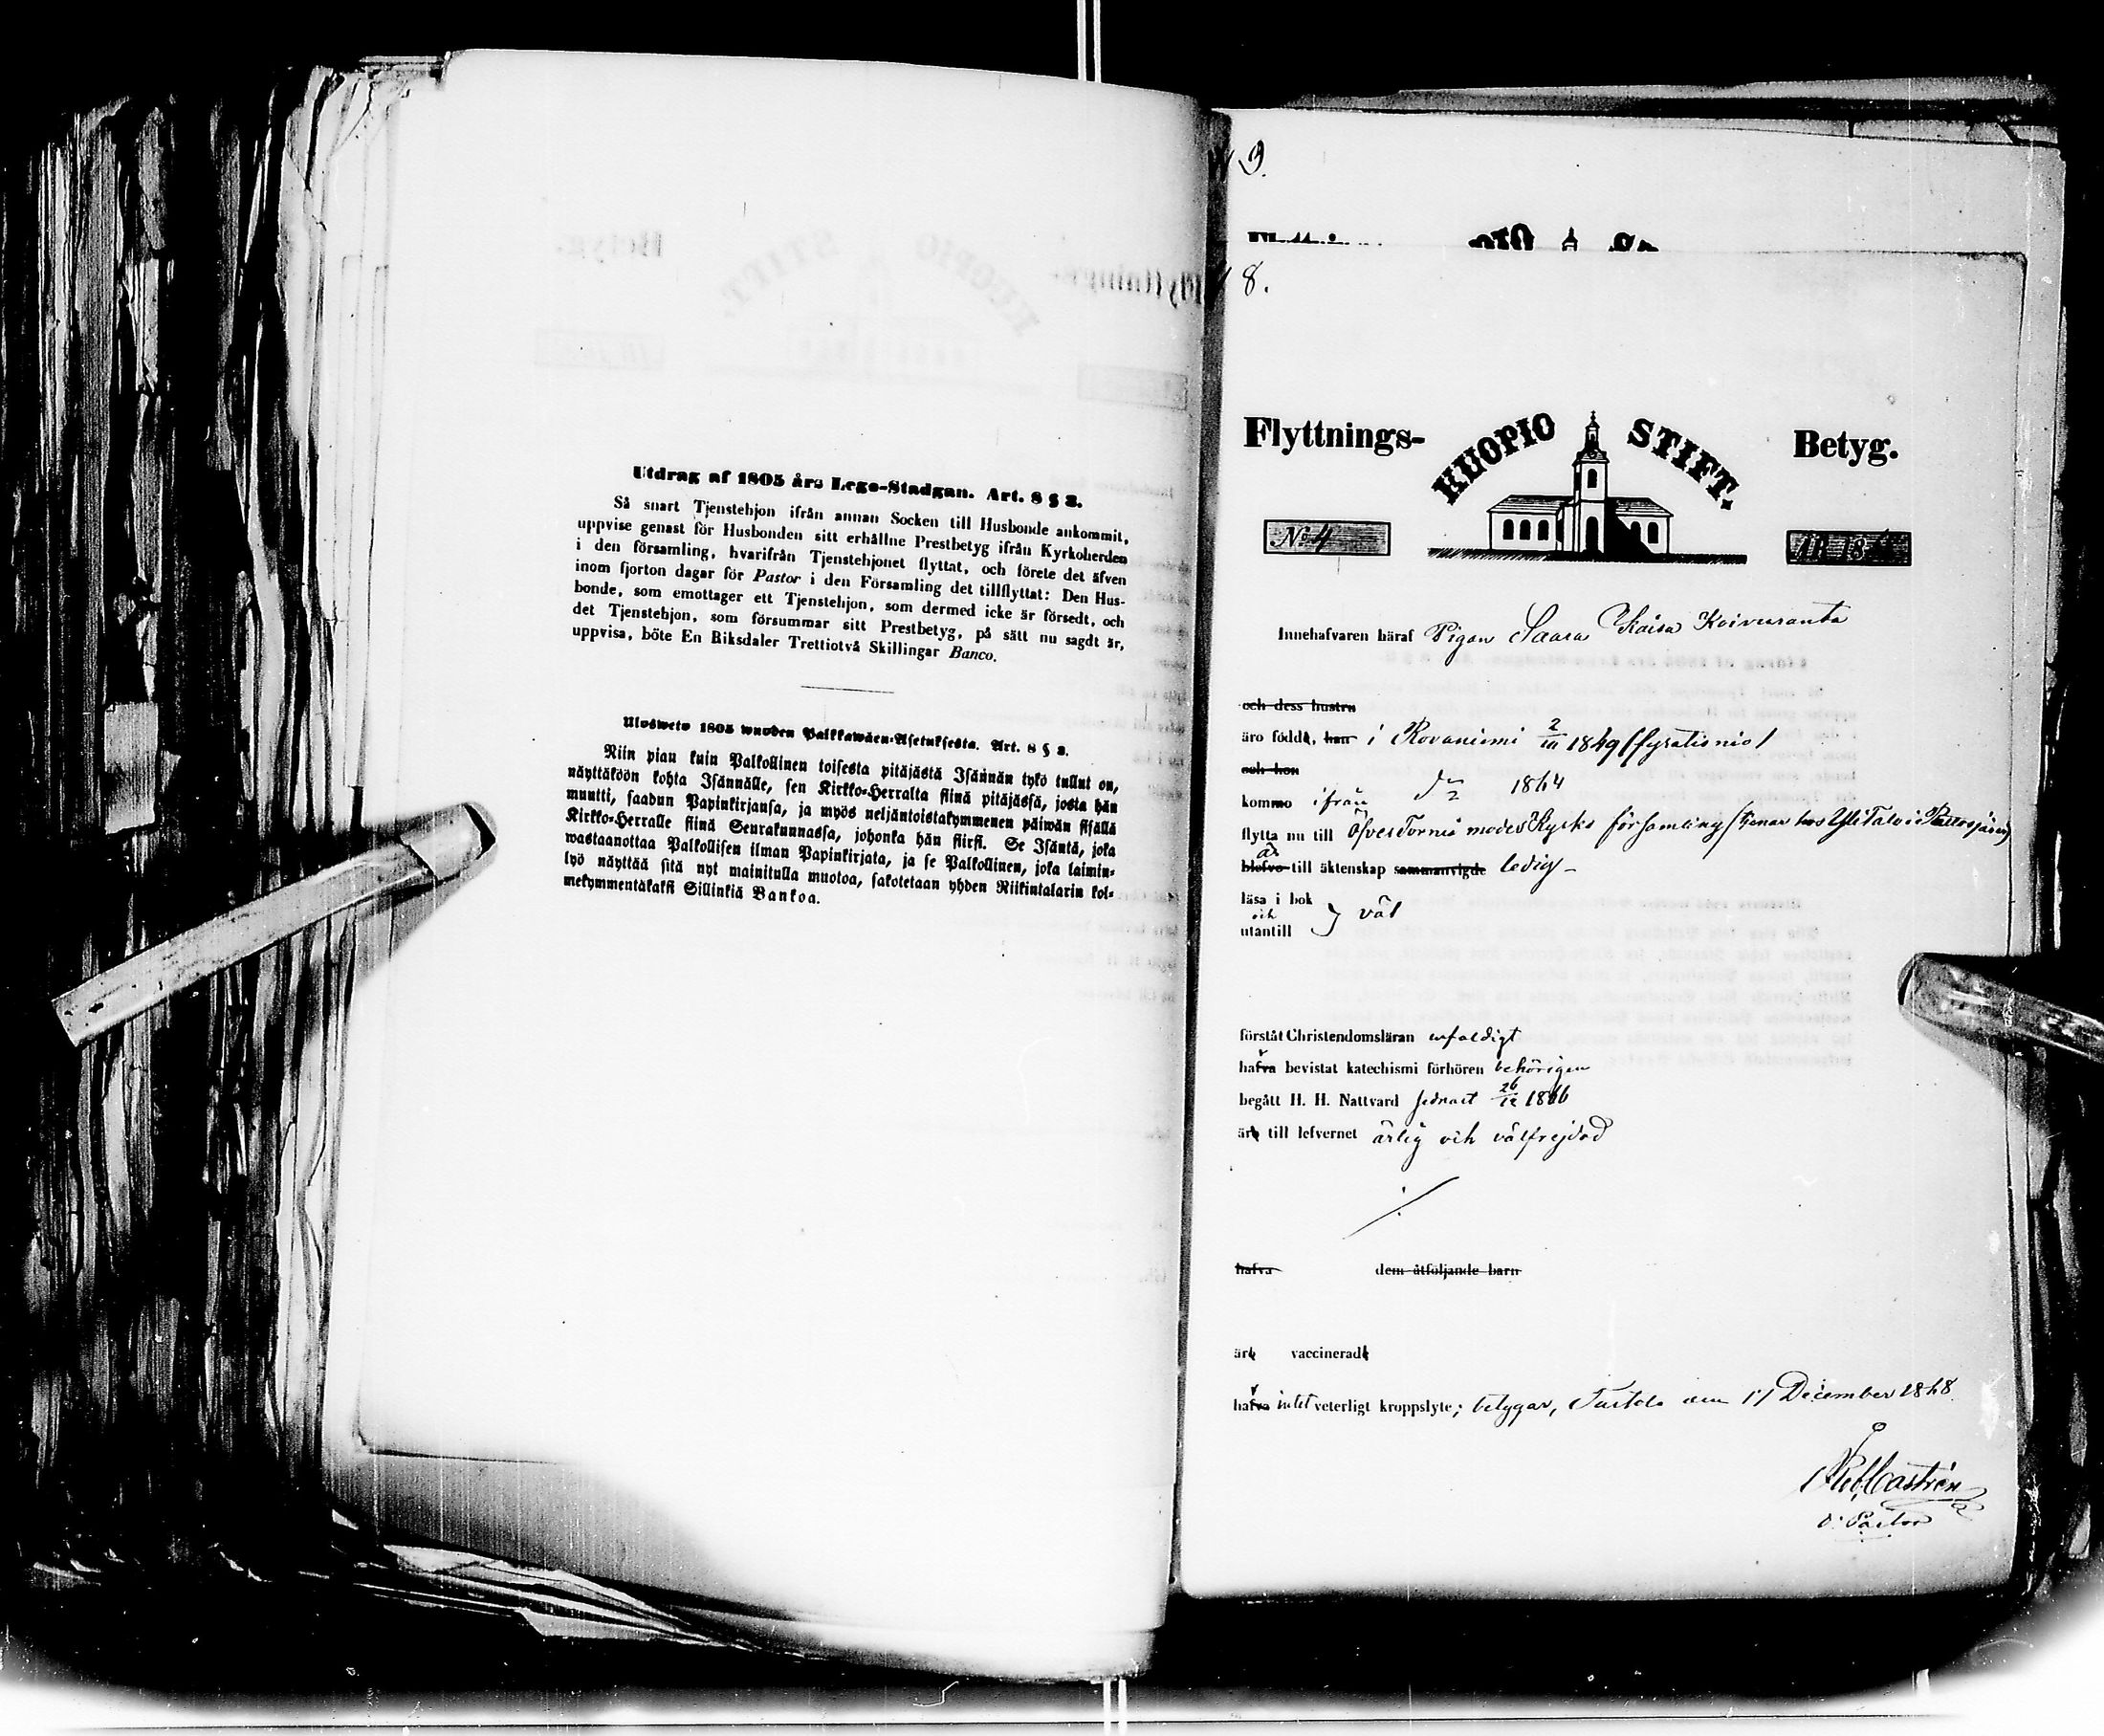 Utdrag af 1805 års Lego-Stadgan. Art. 8 § 3.
Så snart Tjenstehjon ifrån annan Socken till Husbonde ankommit,
uppvise genast för Husbonden sitt erhållne Prestbetyg ifrån Kyrkoherden
i den församling, hvarifrån Tjenstehjonet flyttat, och förete det äfven
inom fjorton dagar för Pastor i den Församling det tillflyttat: Den Hus-
bonde, som emottager ett Tjenstehjon, som dermed icke är försedt, och
det Tjenstehjon, som försummar sitt Prestbetyg, på sätt nu sagdt är,
uppvisa, böte En Riksdaler Trettiotvå Skillingar Banco.
Ulosweto 1805 wuoden Palkkawäen-Asetuksesta. Art. 8 § 3.
Niin pian kuin Palkollinen toisesta pitäjästä Isännän tykö tullut on,
näyttäköön kohta Isännälle, sen Kirkko-Herralta siinä pitäjässä, josta hän
muutti, saadun Papinkirjansa, ja myös neljäntoistakymmenen päiwän sisällä
Kirkko-Herralle siinä Seurakunnassa, johonka hän siirsi. Se Isäntä, joka
wastaanottaa Palkollisen ilman Papinkirjata, ja se Palkollinen, joka laimin-
lyö näyttää sitä nyt mainitulla muotoa, sakotetaan yhden Riikintalarin kol-
mekymmentäkaksi Sillinkiä Bankoa.
3.
8.
Flyttnings- KUOPIO STIFT. Betyg.
No 4
Innehafvaren häraf Pigan Saara Kaisa Koivuranta
och dess hustru
äro födde, han i Rovaniemi 2/III 1849 (fyrationio)
och hon
kommo ifrån d:o 1864
flytta nu till Öfver Torneå moderkyrko församling (tjenar hos Yli Talo i
är
blefvo till äktenskap sammanvigde ledig -
läsa i bok
och } väl
utantill
förstå Christendomsläran enfaldigt
hafva bevistat katechismi förhören behörigen
begått H. H. Nattvard sednast 26/12 1866
äro till lefvernet ärlig och välfrejdad
hafva dem åtföljande barn
äro vaccinerade
hafva intet veterligt kroppslyte; betygar, den 17 December 1868
Castrén
v: Pastor